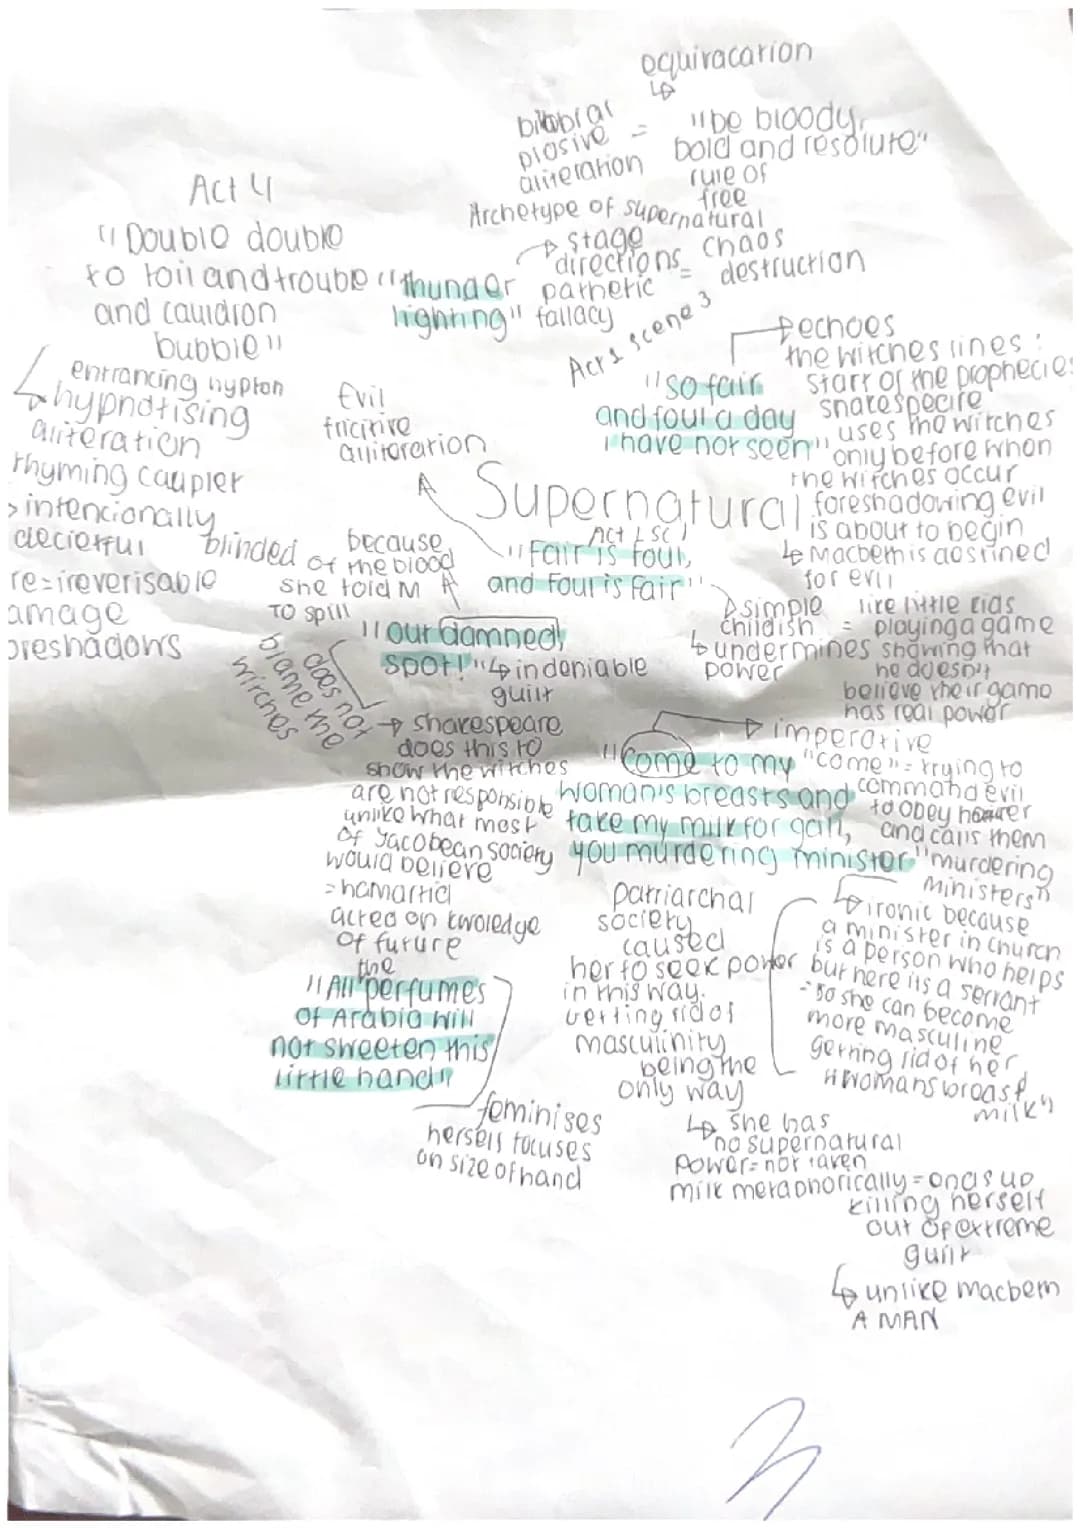 equivacation
bilabial
plosive =
aliteration
"be bloody,
bold and resolute"
rule of
free
Archetype of supernatural
stage
directions =
pathetic
fallacy
chaos
destruction
"thunder
lighting"
Act 4
"Double double
to toil and trouble
and cauldron
bubble"
entrancing hypton
hypnotising
aliteration
rhyming coupler
> intencionally
decietful
re = ireverisable
amage
oreshadows
Evil
fricitive
alliteration
Act 1 scene 3
"so fair
and foul a day
I have not seen"
echoes
the witches lines :
start of the prophecies
shakespeare
uses the witches
only before when
the witches occur
foreshadowing evil
is about to begin
Macbeth is destined
for evil
Supernatural
Act 1 sc 1
"Fair is foul,
and foul is fair"
simple
childish =
undermines
power
like little kids
playing a game
showing that
he doesn't
believe their game
has real power
blinded
because
of the blood
she told M
To spill
"out damned,
spot!"
indeniable
guilt
does not
blame the
witches
shakespeare
does this to
show the witches
are not responsible
unlike what most
of Jacobean society
would believe
= hamartia
acted on kwoledge
of future
"Come to my
woman's breasts and
take my milk for gall,
you murdering minister"
imperative
"come" = trying to
command evil
to obey her
and calls them
"murdering
ministers"
ironic because
a minister in church
is a person who helps
but here its a servant
= so she can become
more masculine
getting rid of her
"womans breast
milk"
patriarchal
society
caused
her to seek power
in this way.
getting rid of
masculinity
being the
only way
she has
no supernatural
power = not taken
milk metaphorically = ends up
killing herself
out of extreme
guilt
unlike macbeth
A MAN
the
"All perfumes
of Arabia will
not sweeten this
little hand"
feminises
herself focuses
on size of hand